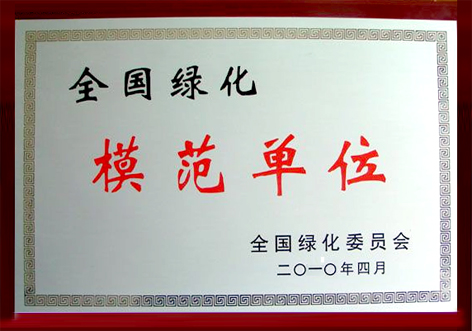 全国绿化
模范单位
全国绿化委员会
二〇一〇年四月